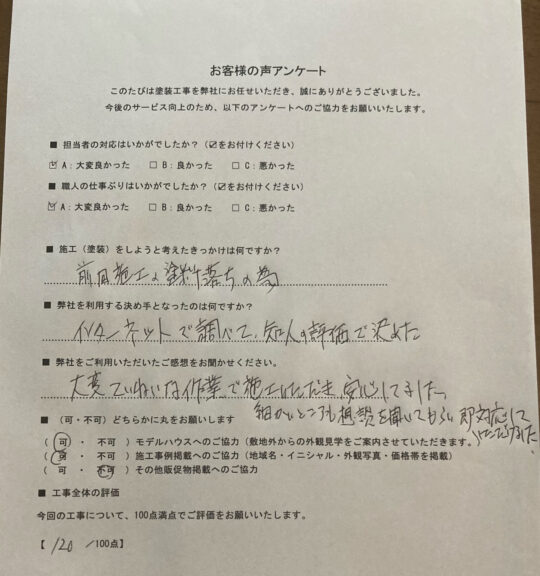 お客様の声アンケート
このたびは塗装工事を弊社にお任せいただき、誠にありがとうございました。
今後のサービス向上のため、以下のアンケートへのご協力をお願いいたします。
■ 担当者の対応はいかがでしたか？（☑をお付けください）
☑ A：大変良かった　□ B：良かった　□ C：悪かった
■ 職人の仕事ぶりはいかがでしたか？（☑をお付けください）
☑ A：大変良かった　□ B：良かった　□ C：悪かった
■ 施工（塗装）をしようと考えたきっかけは何ですか？
前回施工の塗料落ちの為
■ 弊社を利用する決め手となったのは何ですか？
インターネットで調べて、知人の評価で決めた
■ 弊社をご利用いただいたご感想をお聞かせください。
大変ていねいな作業で施工いただき安心してました。
細かいところも相談を聞いてもらい即対応して
いただけました。
■ （可・不可）どちらかに丸をお願いします
（ 可 ・ 不可 ）モデルハウスへのご協力（敷地外からの外観見学をご案内させていただきます。）
（ 可 ・ 不可 ）施工事例掲載へのご協力（地域名・イニシャル・外観写真・価格帯を掲載）
（ 可 ・ 不可 ）その他販促物掲載へのご協力
■ 工事全体の評価
今回の工事について、100点満点でご評価をお願いいたします。
【 120 ／100点】